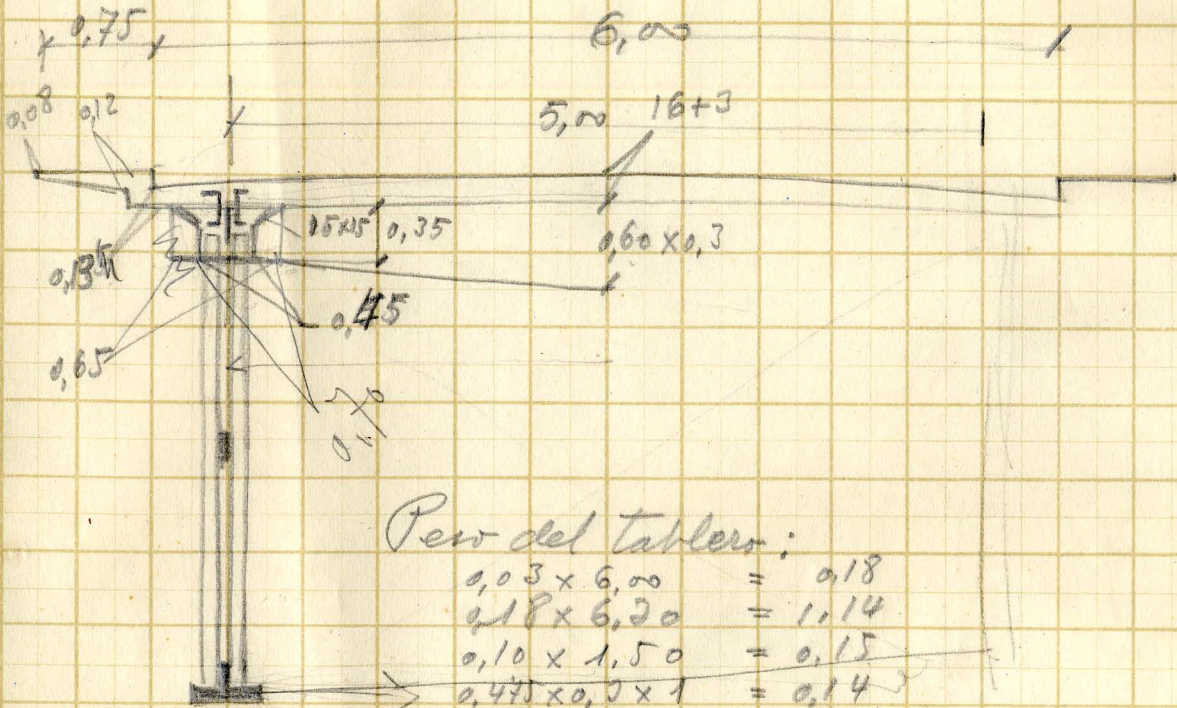 0,75
6,00
0,08 0,12
5,00 16+3
15x15 0,35
0,60 x 0,3
0,45
0,65
Peso del tablero:
0,03 x 6,00 = 0,18
0,18 x 6,30 = 1,14
0,10 x 1,50 = 0,15
0,475 x 0,3 x 1 = 0,14